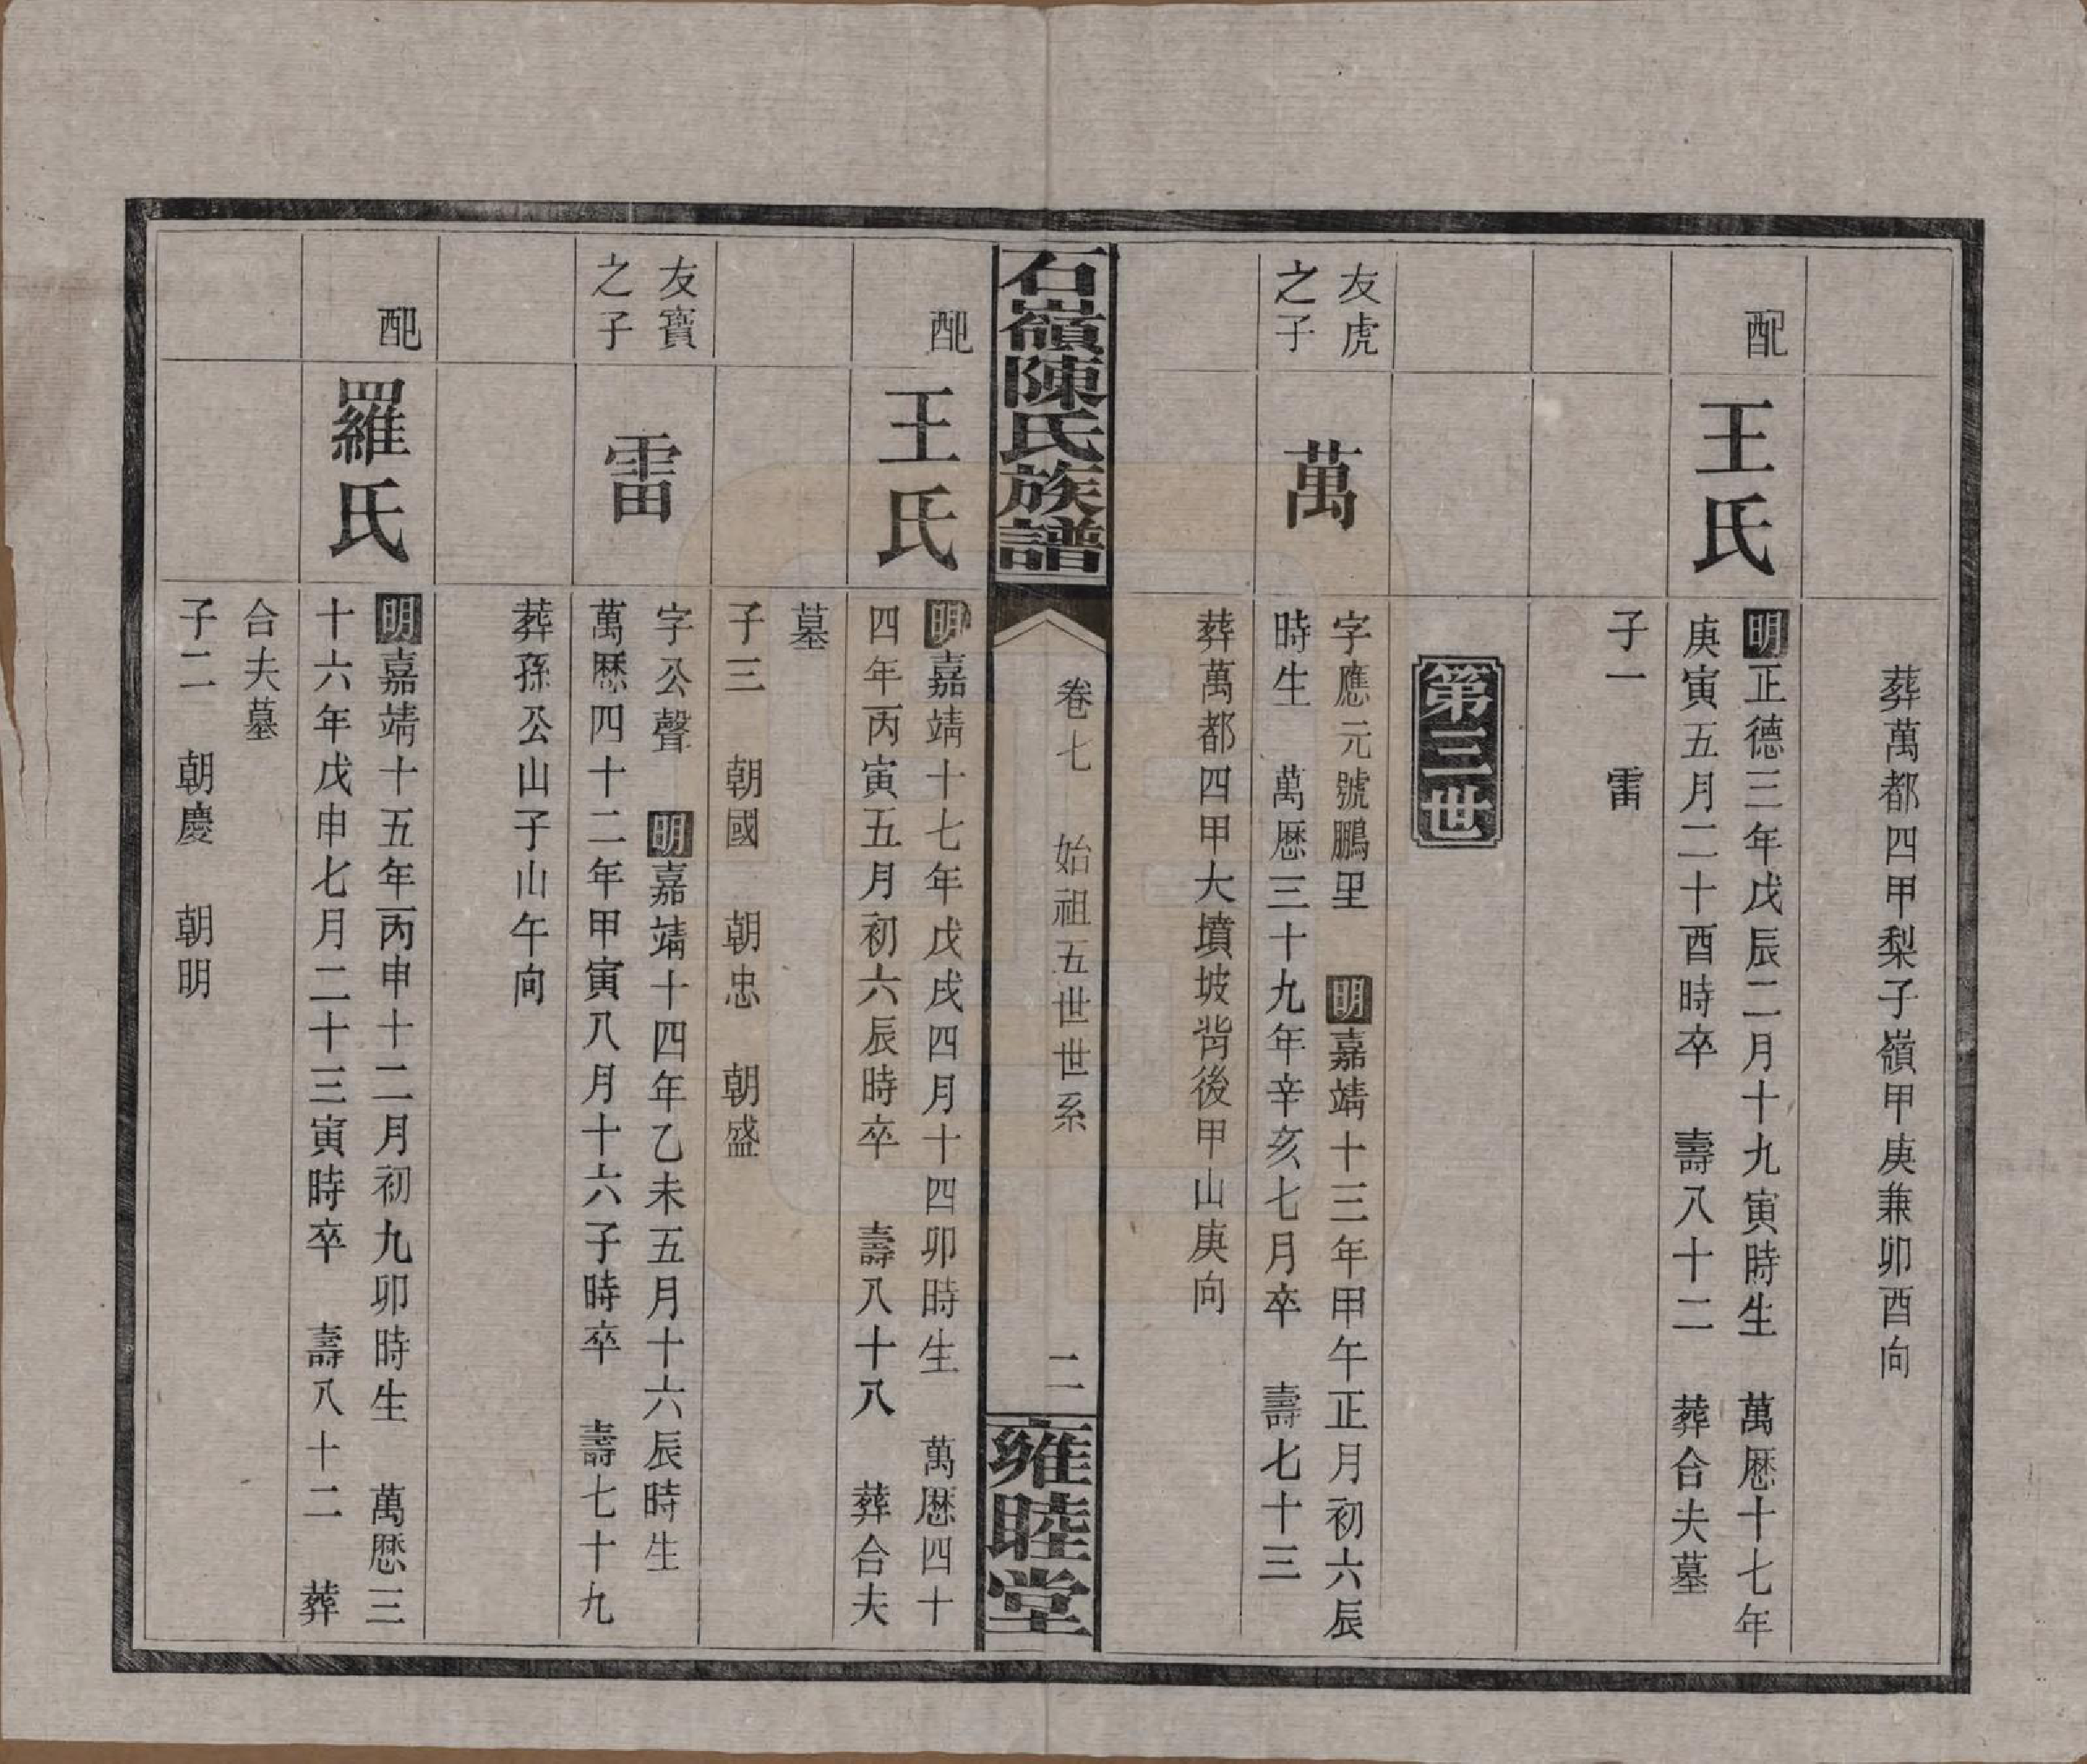 葬萬都四甲梨子嶺甲庚兼卯酉向
配
王氏
明正德三年戊辰二月十九寅時生 萬厯十七年
庚寅五月二十酉時卒 壽八十二 葬合夫墓
子一 雷
第三世
友虎
之子
萬
字應元號鵬里 明嘉靖十三年甲午正月初六辰
時生 萬厯三十九年辛亥七月卒 壽七十三
葬萬都四甲大墳坡背後甲山庚向
石嶺陳氏族譜
卷七 始祖五世世系 二
雍睦堂
配
王氏
明嘉靖十七年戊戌四月十四卯時生 萬厯四十
四年丙寅五月初六辰時卒 壽八十八 葬合夫
墓
子三 朝國 朝忠 朝盛
友寶
之子
雷
字公聲 明嘉靖十四年乙未五月十六辰時生
萬厯四十二年甲寅八月十六子時卒 壽七十九
葬孫公山子山午向
配
羅氏
明嘉靖十五年丙申十二月初九卯時生 萬厯三
十六年戊申七月二十三寅時卒 壽八十二 葬
合夫墓
子二 朝慶 朝明